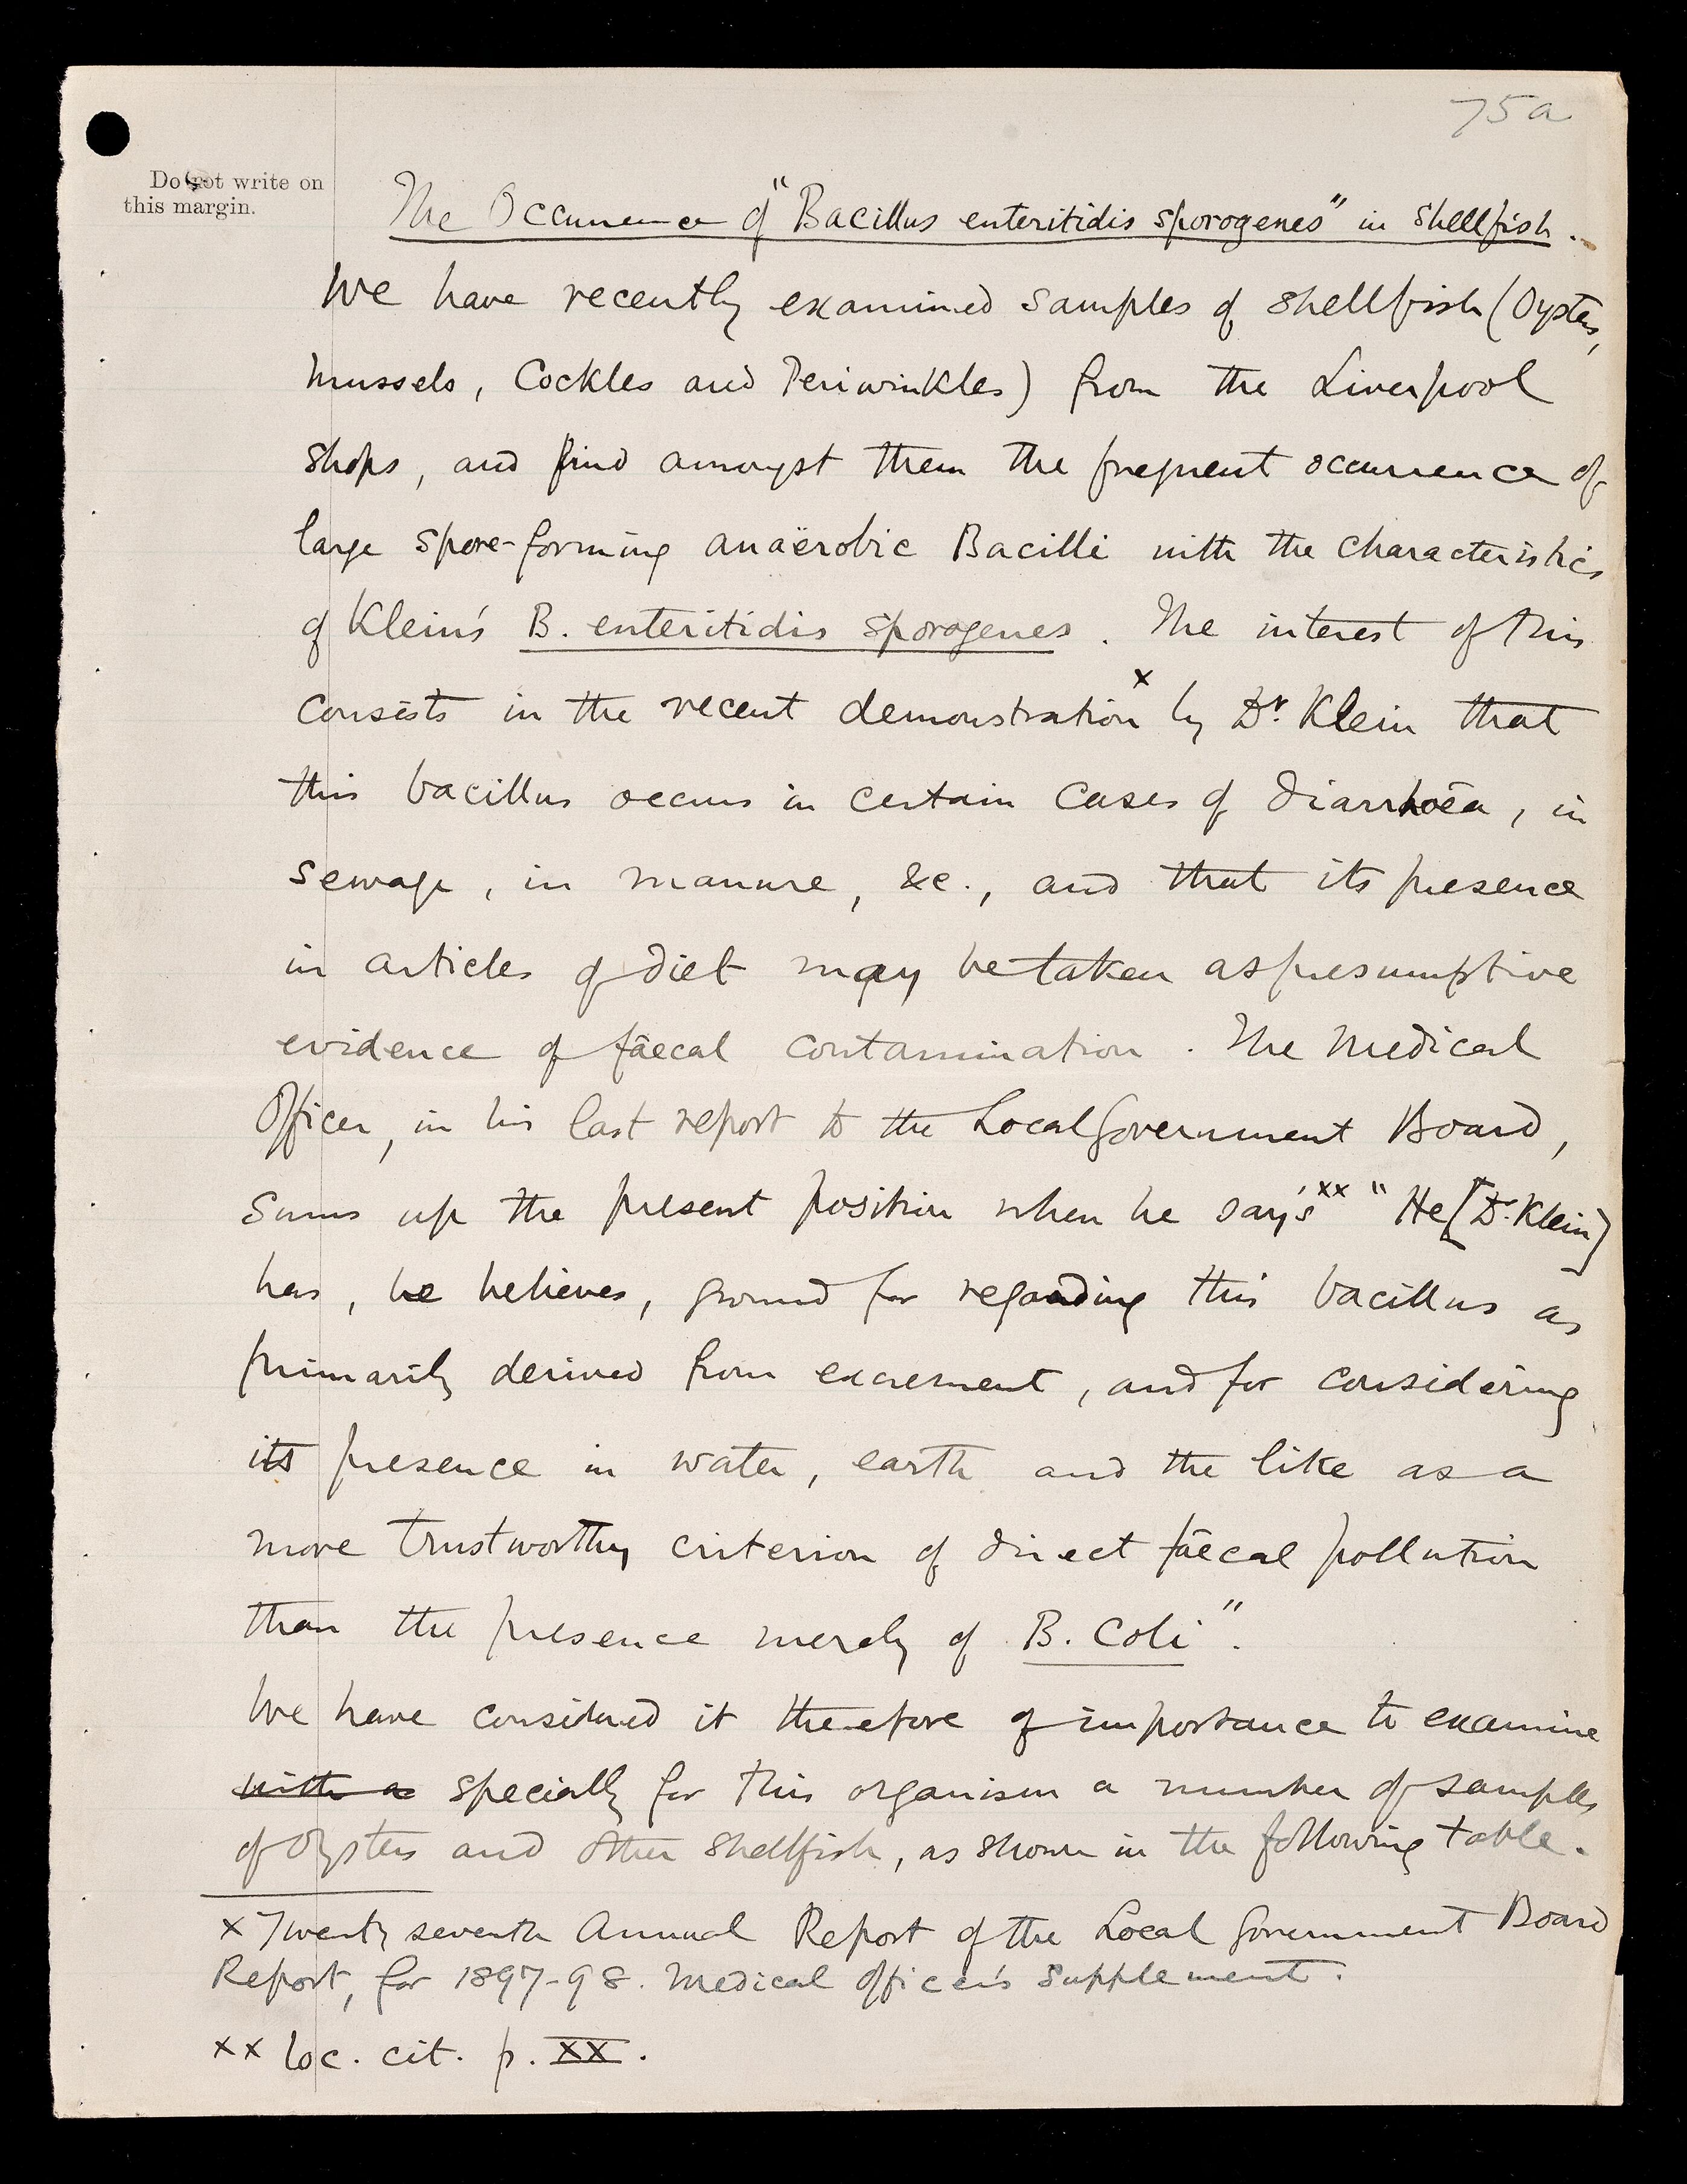 75a
Do not write on
this margin.
The Occurrence of "Bacillus enteritidis sporogenes" in Shellfish.
We have recently examined samples of shellfish (Oysters,
Mussels, Cockles and Periwinkles) from the Liverpool
shops, and find amongst them the frequent occurrence of
large spore-forming anaërobic Bacilli with the characteristics
of Klein's B. enteritidis sporogenes. The interest of this
consists in the recent demonstration x by Dr. Klein that
this bacillus occurs in certain cases of diarrhoēa, in
sewage, in manure, &c., and that its presence
in articles of diet may be taken as presumptive
evidence of fāecal contamination. The Medical
Officer, in his last report to the Local Government Board,
sums up the present position when he say's xx "He [Dr. Klein]
has, he believes, ground for regarding this bacillus as
primarily derived from excrement, and for considering
its presence in water, earth and the like as a
more trustworthy criterion of direct fāecal pollution
than the presence merely of B. Coli".
We have considered it therefore of importance to examine
with a specially for this organism a number of samples
of Oysters and other shellfish, as shown in the following table.
x Twenty seventh Annual Report of the Local Government Board
Report, for 1897-98. Medical Officer's Supplement.
xx loc. cit. p. XX.